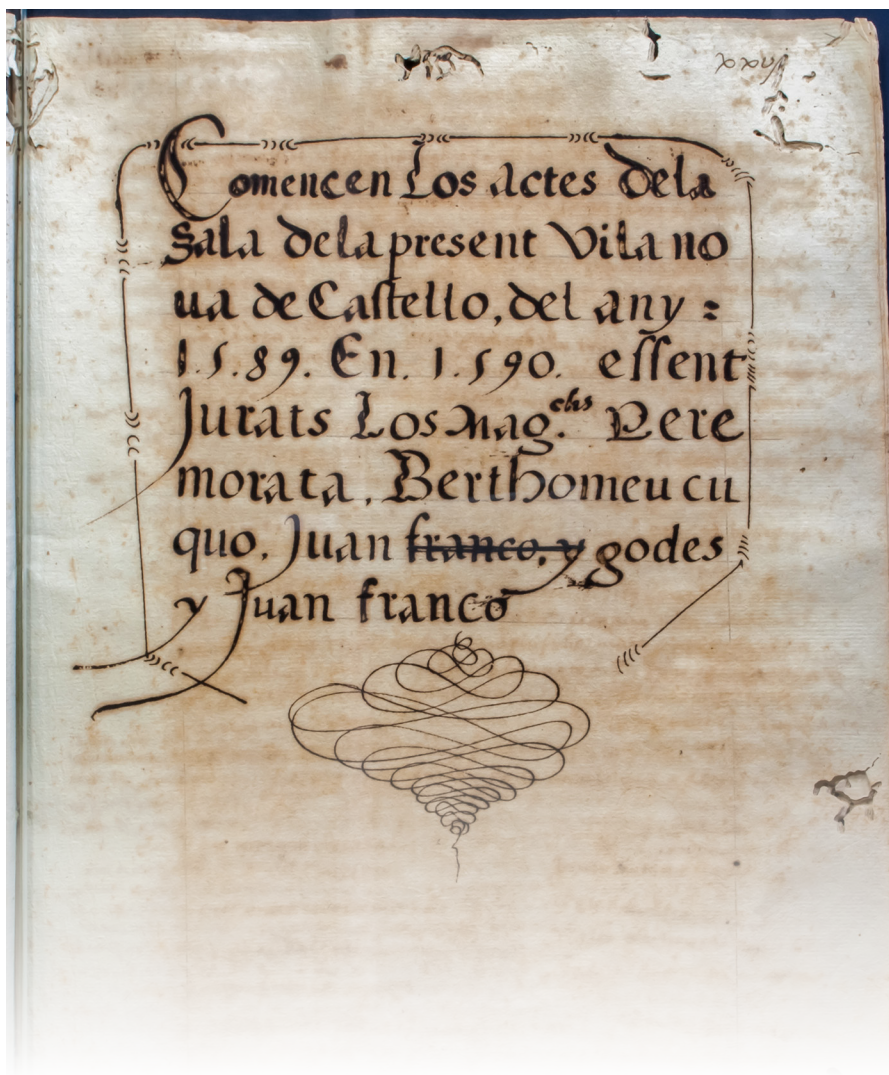 Comencen Los actes dela
Sala dela present Vila no
ua de Castello, del any =
1.5.89. En. 1.590. essent
Jurats Los Mag.chs Pere
morata, Berthomeu cu
quo, Juan franco, y godes
y Juan franco